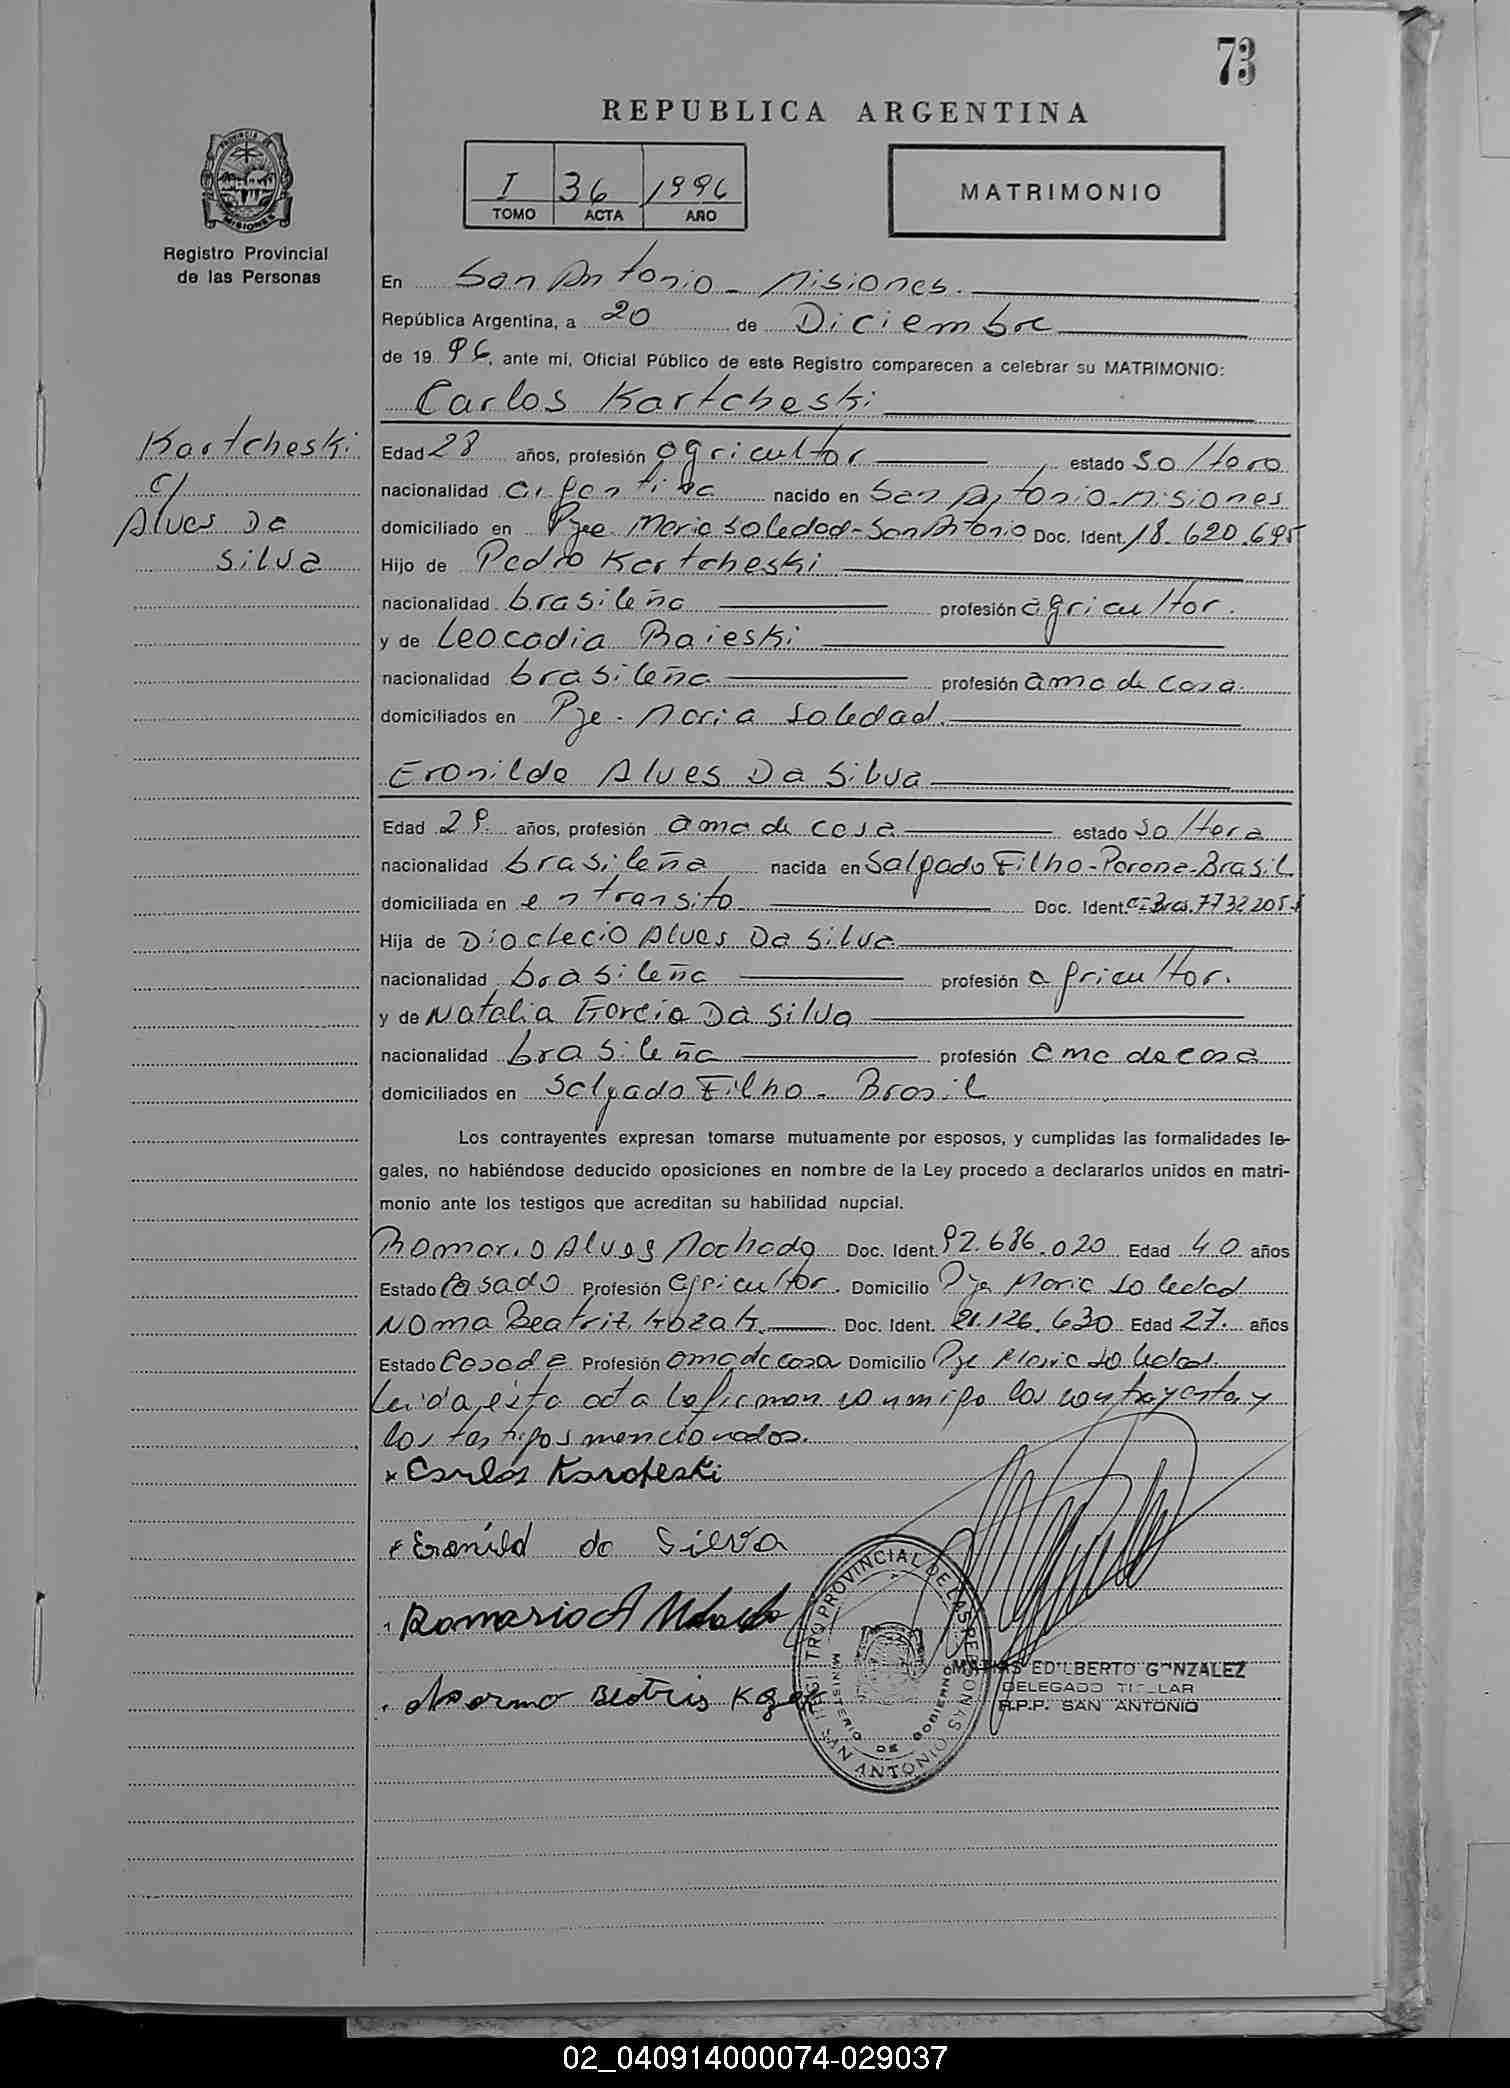 73
REPUBLICA ARGENTINA
I 36 1996
TOMO ACTA AÑO
MATRIMONIO
PROVINCIA DE
MISIONES
Registro Provincial
de las Personas
En San Antonio - Misiones.
República Argentina, a 20 de Diciembre
de 19 96, ante mí, Oficial Público de este Registro comparecen a celebrar su MATRIMONIO:
Carlos Kartcheski
Kartcheski
c/
Alves Da
Silva
Edad 28 años, profesión agricultor estado soltero
nacionalidad argentina nacido en San Antonio-Misiones
domiciliado en Pje. Maria Soledad-San Antonio Doc. Ident. 18.620.695
Hijo de Pedro Kartcheski
nacionalidad brasileña profesión agricultor.
y de Leocadia Raieski
nacionalidad brasileña profesión ama de casa.
domiciliados en Pje. Maria Soledad.
Eronilde Alves Da Silva
Edad 29. años, profesión ama de casa estado soltera
nacionalidad brasileña nacida en Salgado Filho-Parana-Brasil
domiciliada en en transito Doc. Ident. CI Bras. 7732205-
Hija de Dioclecio Alves Da Silva
nacionalidad brasileña profesión agricultor.
y de Natalia Garcia Da Silva
nacionalidad brasileña profesión ama de casa
domiciliados en Salgado Filho - Brasil
Los contrayentes expresan tomarse mutuamente por esposos, y cumplidas las formalidades le-
gales, no habiéndose deducido oposiciones en nombre de la Ley procedo a declararlos unidos en matri-
monio ante los testigos que acreditan su habilidad nupcial.
Romario Alves Machado Doc. Ident. 92.686.020 Edad 40 años
Estado Casado Profesión agricultor. Domicilio Pje Maria Soledad
Noma Beatriz Kozak. Doc. Ident. 21.126.630 Edad 27. años
Estado Casada Profesión ama de casa Domicilio Pje Maria Soledad.
Leida ésta acta la firman conmigo los contrayentes y
los testigos mencionados.
x Carlos Karcheski
x Eronild da Silva
Romario A Machado
Norma Beatris Kozak
REGISTRO PROVINCIAL DE LAS PERSONAS
MINISTERIO DE GOBIERNO
SAN ANTONIO
MATIAS EDILBERTO GONZALEZ
DELEGADO TITULAR
R.P.P. SAN ANTONIO
02_040914000074-029037